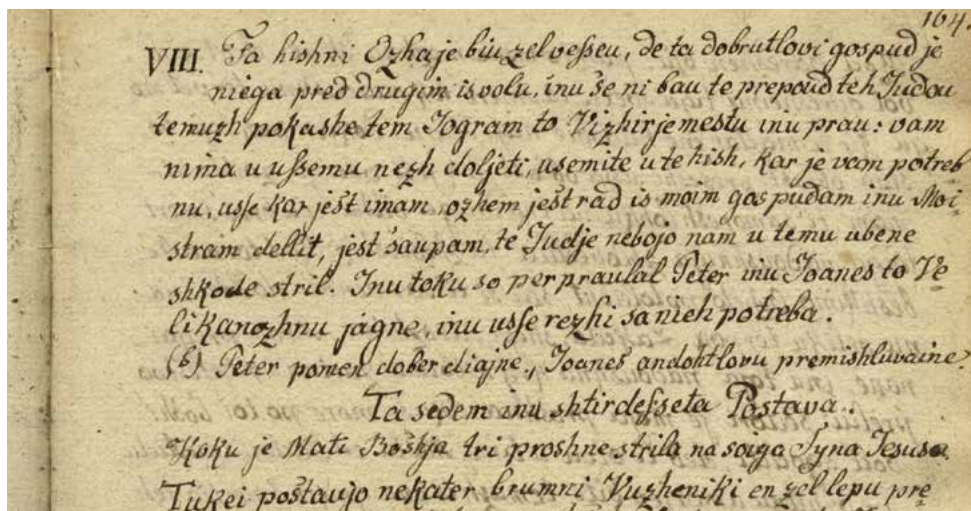 164.
VIII. Ta hishni Ozha je biu zel vesseu, de ta dobrutlovi gospud je
niega pred drugim isvolu, inu se ni bau te prepoud teh Judou
temuzh pokashe tem Jogram to Vizhirje mestu inu prau: vam
nima u ussemu nezh doljeti, usemite u te hish, kar je vam potreb
nu, usse kar jest imam, ozhem jest rad is moim gospudam inu Moi-
stram dellit, jest saupam, te Judje nebojo nam u temu ubene
shkode stril. Inu toku so perpraulal Peter inu Joanes to Ve-
likanozhnu jagne, inu usse rezhi sa nieh potreba.
(b) Peter pomen dober diajne, Joanes andohtlovu premishluvaine.
Ta sedem inu shtirdesseta Postava.
Koku je Mati Boshja tri proshne strila na soiga Synа Jesusa.
Tukei postaujo nekater brumni Vuzheniki en zel lepu pre